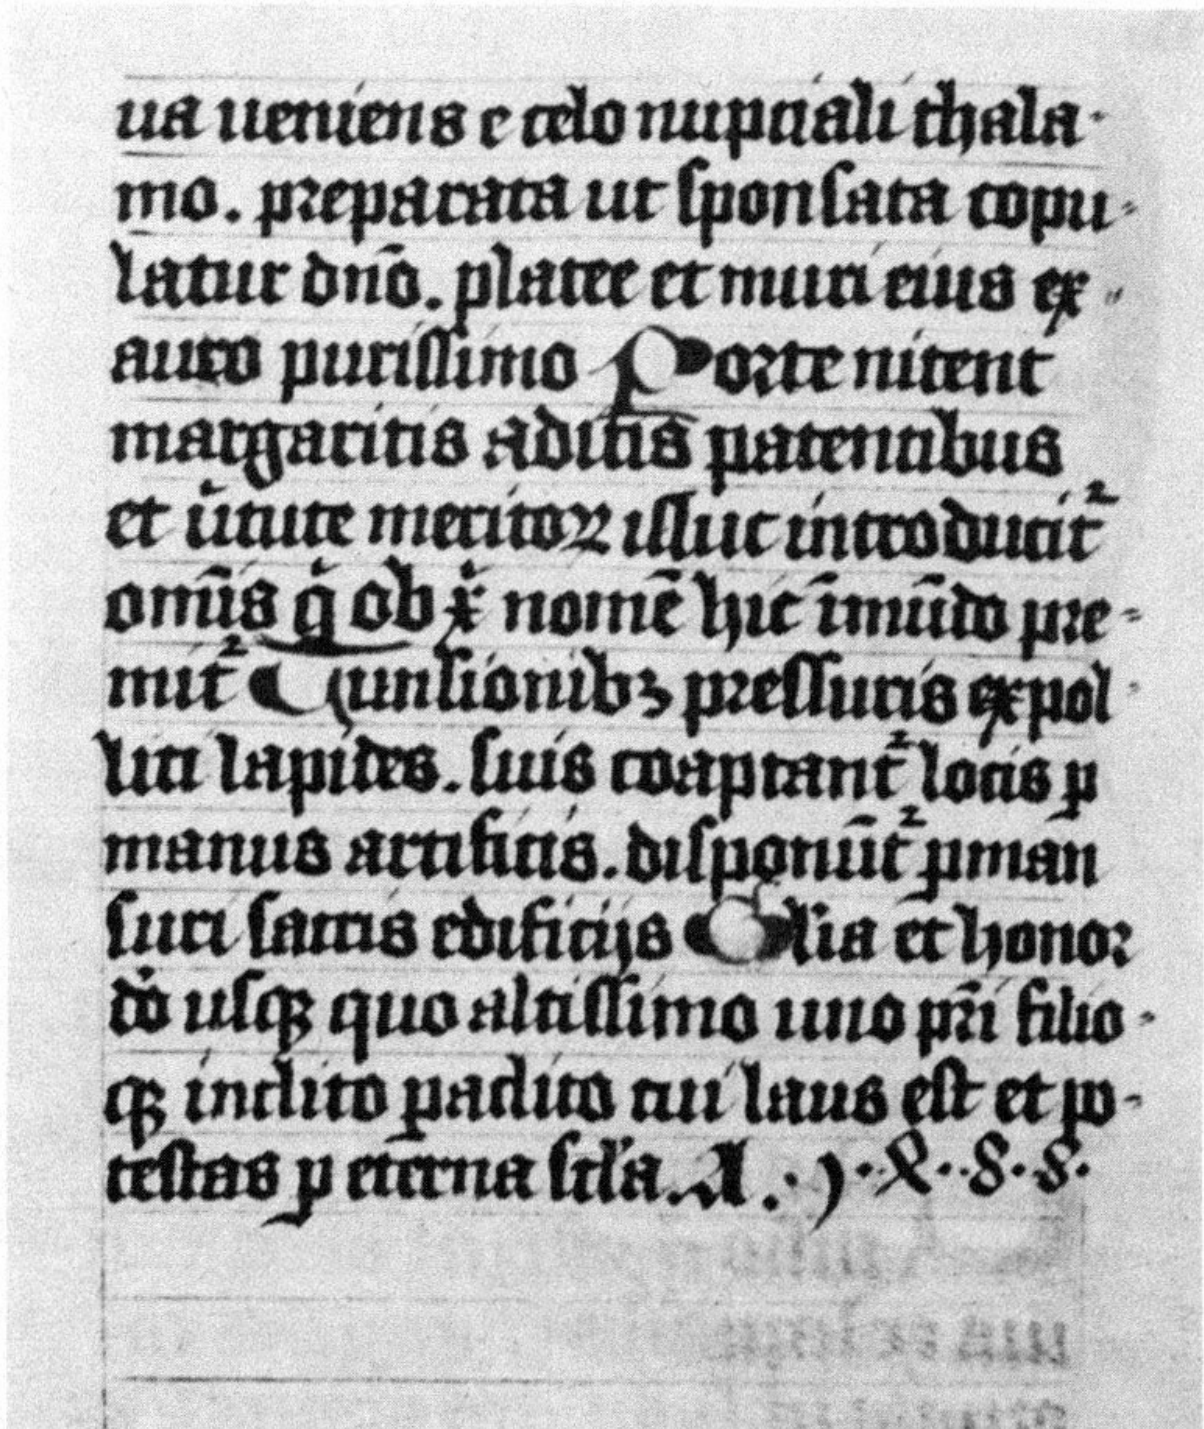 ua ueniens e celo nupciali thala-
mo. preparata ut sponsata copu-
latur dn̄o. platee et muri eius ex
auro purissimo Porte nitent
margaritis aditis patentibus
et uͥtute meritoꝝ illuc introducit᷑
om̄is qͥ ob xͥ nomē hic ī mūdo pre-
mit᷑ Tunsionibꝫ pressuris expol-
liti lapides. suis coaptant᷑ locis ꝑ
manus artificis. disponūt᷑ ꝑman
suri sacris edificijs Gl̓ia et honor
dͦo usqꝫ quo altissimo uno pr̄i filio-
qꝫ inclito ꝑaclito cui laus est et po-
testas ꝑ eterna scl̓a. A.